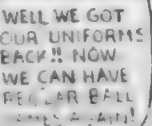 WELL WE GOT
OUR UNIFORMS
BACK!! NOW
WE CAN HAVE
BALL